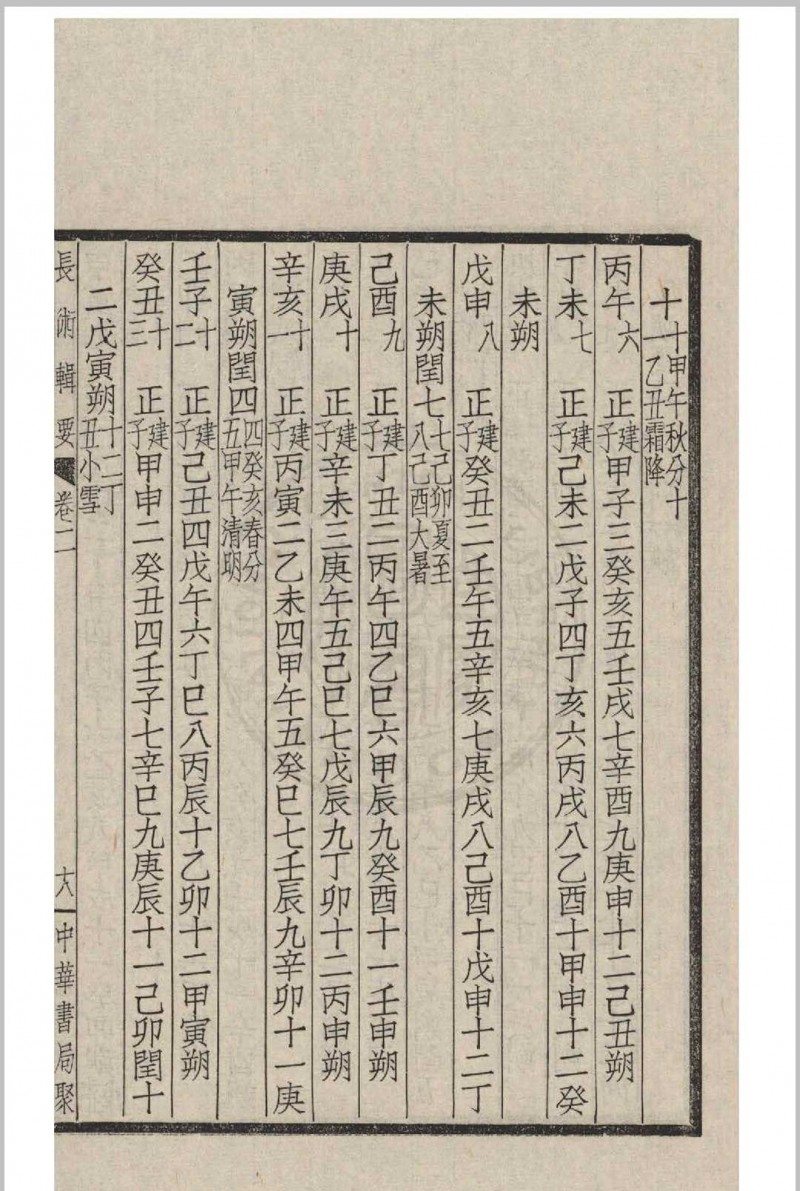 十十甲午秋分十
一乙丑霜降
丙午六 正建子甲子三癸亥五壬戌七辛酉九庚申十二己丑朔
丁未七 正建子己未二戊子四丁亥六丙戌八乙酉十甲申十二癸
未朔
戊申八 正建子癸丑二壬午五辛亥七庚戌八己酉十戊申十二丁
未朔閏七七己卯夏至八己酉大暑
己酉九 正建子丁丑二丙午四乙巳六甲辰九癸酉十一壬申朔
庚戌十 正建子辛未三庚午五己巳七戊辰九丁卯十二丙申朔
辛亥十一 正建子丙寅二乙未四甲午五癸巳七壬辰九辛卯十一庚
寅朔閏四四癸亥春分五甲午清明
壬子十二 正建子己丑四戊午六丁巳八丙辰十乙卯十二甲寅朔
癸丑十三 正建子甲申二癸丑四壬子七辛巳九庚辰十一己卯閏十
二戊寅朔十二丁丑小雪
長術輯要 卷二 十八 中華書局聚